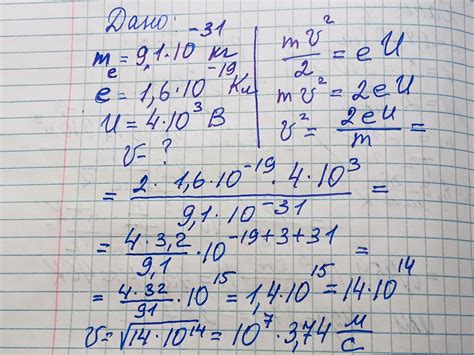 Дано:
mₑ = 9,1·10⁻³¹ кг
e = 1,6·10⁻¹⁹ Кл
U = 4·10³ В
v = ?
mv²/2 = eU
mv² = 2eU
v² = 2eU/m =
= 2·1,6·10⁻¹⁹·4·10³/9,1·10⁻³¹ =
= 4·3,2/9,1·10⁻¹⁹⁺³⁺³¹ =
= 4·32/91·10¹⁵ = 1,4·10¹⁵ = 14·10¹⁴
v = √14·10¹⁴ = 10⁷·3,74 м/с